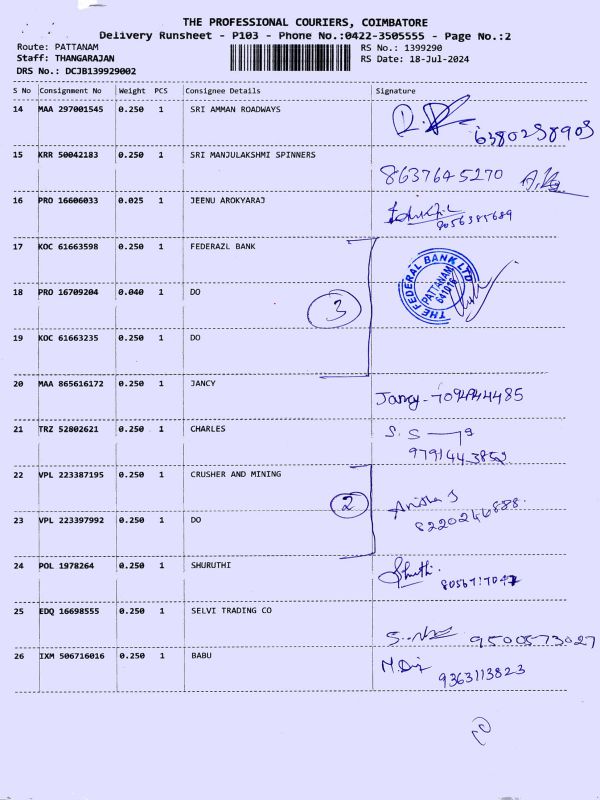 THE PROFESSIONAL COURIERS, COIMBATORE
Delivery Runsheet - P103 - Phone No.:0422-3505555 - Page No.:2
Route: PATTANAM RS No.: 1399290
Staff: THANGARAJAN RS Date: 18-Jul-2024
DRS No.: DCJB139929002
S No Consignment No Weight PCS Consignee Details Signature
14 MAA 297001545 0.250 1 SRI AMMAN ROADWAYS
6380258905
15 KRR 50042183 0.250 1 SRI MANJULAKSHMI SPINNERS
8637645270
16 PRO 16606033 0.025 1 JEENU AROKYARAJ
8056385689
17 KOC 61663598 0.250 1 FEDERAZL BANK
THE FEDERAL BANK LTD
PATTANAM
641016
18 PRO 16709204 0.040 1 DO
3
19 KOC 61663235 0.250 1 DO
20 MAA 865616172 0.250 1 JANCY
Jancy - 7094944485
21 TRZ 52802621 0.250 1 CHARLES
S. S
9791443852
22 VPL 223387195 0.250 1 CRUSHER AND MINING
2
23 VPL 223397992 0.250 1 DO
8220246888.
24 POL 1978264 0.250 1 SHURUTHI
25 EDQ 16698555 0.250 1 SELVI TRADING CO
9500573027
26 IXM 506716016 0.250 1 BABU
9363113823